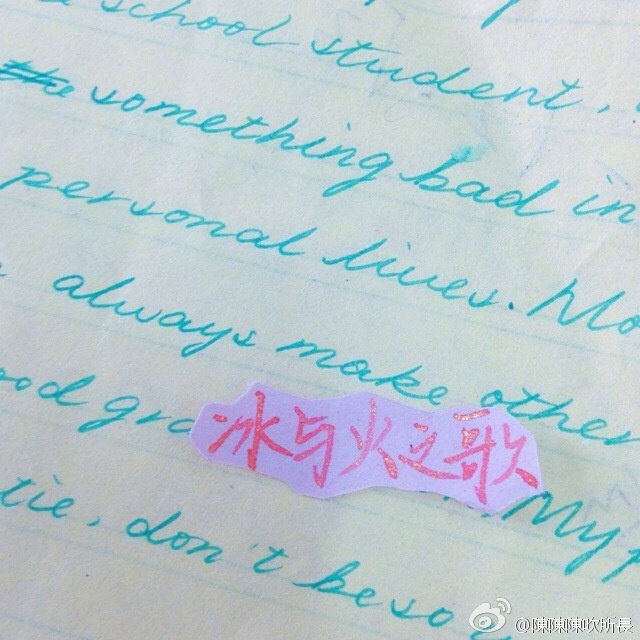 school student,
something bad in
personal lives. Mo
always make other
ood gra
冰与火之歌
My
tie, don't be so
@陳陳陳吹所長